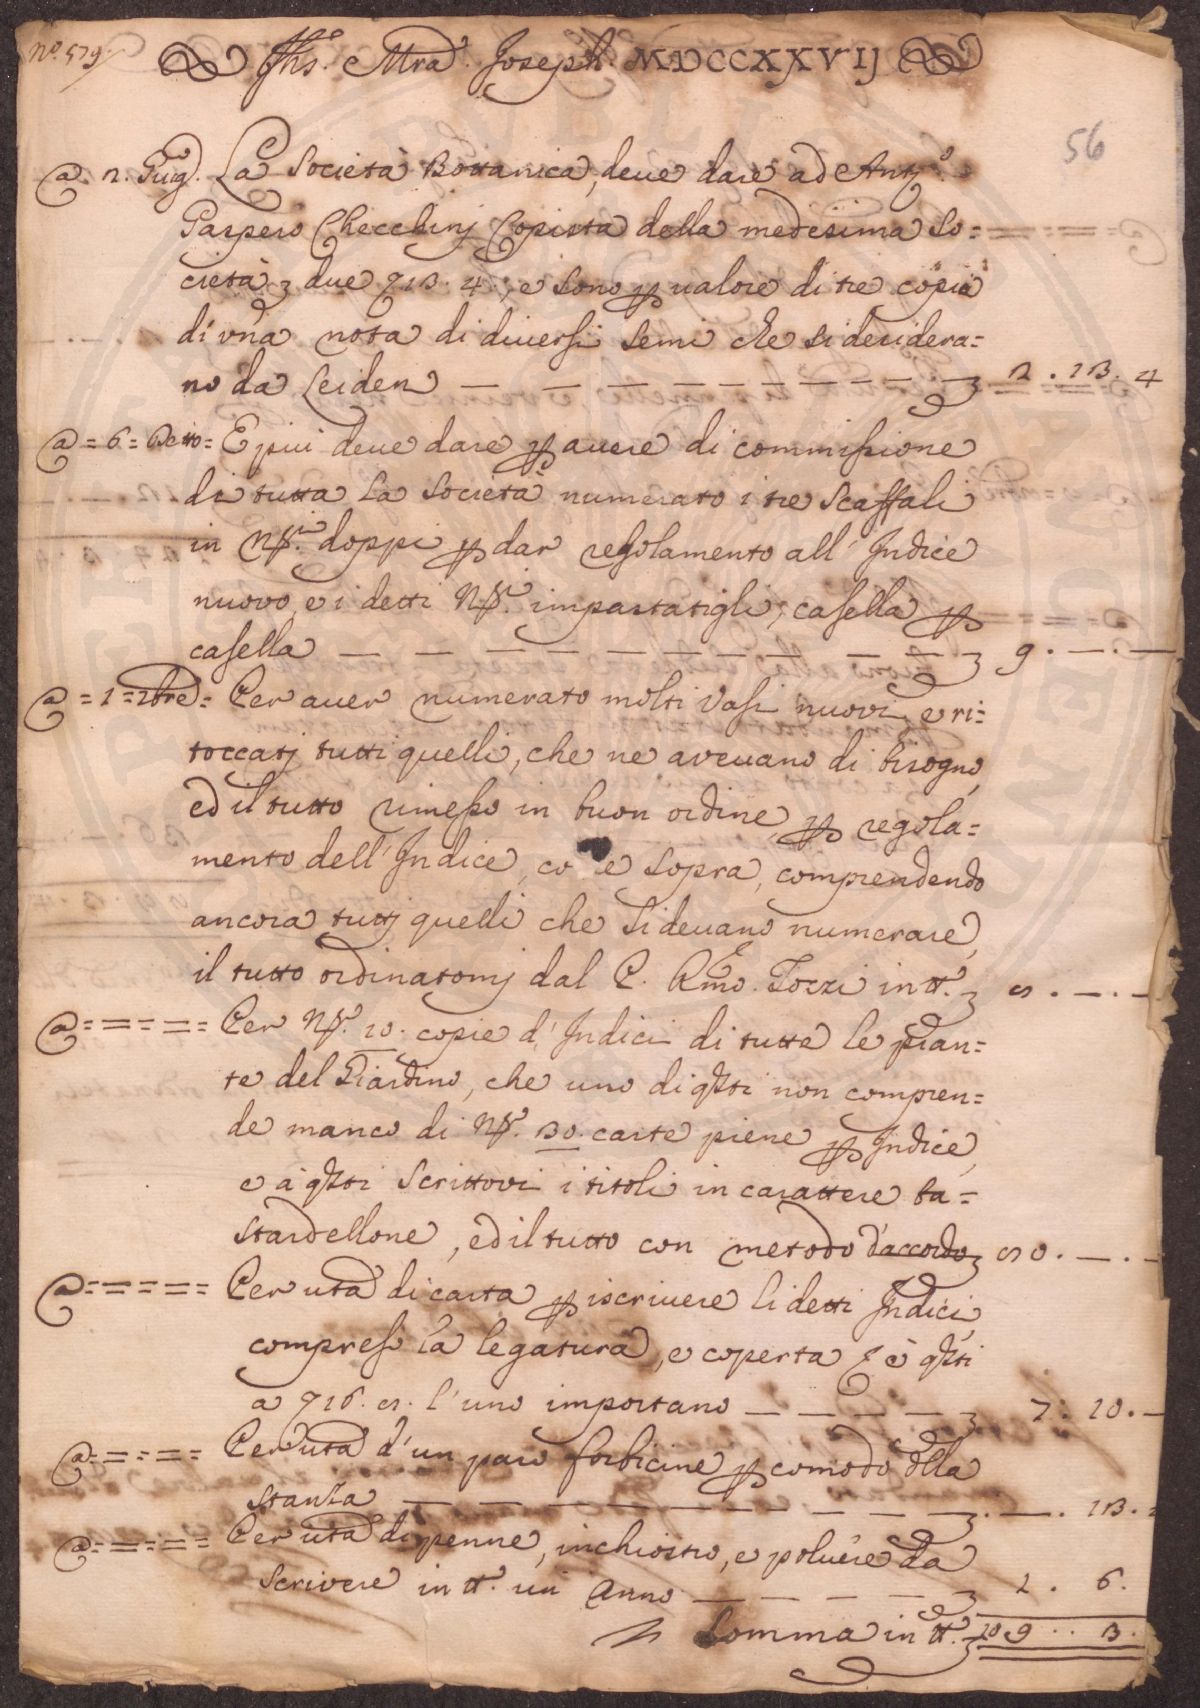 No. 579
Jhs. Mra. Joseph. MDCCXXVIJ
56
a. 2. Giug. La Società Bottanica, deue dare ad Antº.
Gaspero Checchinj Copista della medesima So=
cietà due 13. 4., e sono p ualore di tre copie
di una nota di diuersi semi che si desidera=
no da Leiden — — — — — — — — — 2. 13. 4
a = 6 = Detto = E piu deue dare p auere di commissione
di tutta la Società numerato i tre Scaffali
in Nri. doppi p dar regolamento all' Indice
nuovo, e i detti Nri. impastatigli, casella p
casella — — — — — — — — — 9. — . —
a = 1 = 2bre = Per auer numerato molti Vasi nuovi, e ri=
toccatj tutti quelli, che ne aveuano di bisogno,
ed il tutto rimesso in buon ordine, p regola=
mento dell' Indice, co e sopra, comprendendo
ancora tuttj quelli che si deuano numerare,
il tutto ordinatomj dal P. Rmo. Tozzi in tt.
a = = = = = Per Nr. 10. copie d' Indici di tutte le pian=
te del Giardino, che uno di qsti non compren=
de manco di Nr. 30. carte piene p Indice,
e à qsti Scrittovi i titoli in carattere ba=
stardellone, ed il tutto con metodo d'accordo
a = = = = = Per uta di carta p iscriuere li detti Indici,
compresi la legatura, e coperta à qsti
a l' uno importano — — — — — 7. 10. —
a = = = = = Per uta d' un paro forbicine p comodo dlla
stanza — — — — — — — — — . — . 13.
a = = = = = Per uta di penne, inchiostro, e poluere da
scrivere in tt. un Anno — — — — — 2. 6.
Somma in tt. 109 . . 3.